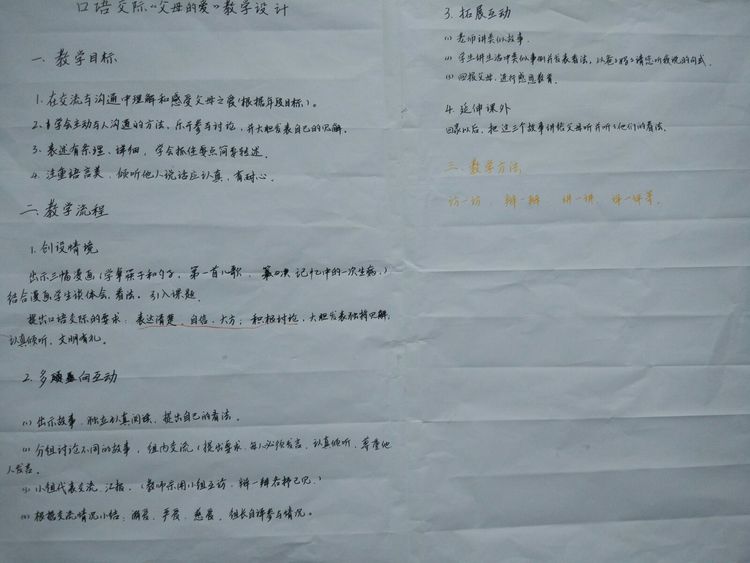 口语交际"父母的爱"教学设计
一、教学目标
1. 在交流与沟通中理解和感受父母之爱(根据年段目标)。
2. 学会主动与人沟通的方法,乐于参与讨论,并大胆发表自己的见解。
3. 表述有条理、详细,学会抓住要点简要转述。
4. 注重语言美,倾听他人说话应认真,有耐心。
二、教学流程
1. 创设情境
出示三幅漫画(学拿筷子和勺子,第一首儿歌,记忆中的一次生病。)
结合漫画,学生谈体会、看法。引入课题
提出口语交际的要求:表达清楚,自信、大方;积极讨论,大胆发表独特见解;
认真倾听,文明有礼。
2. 多向互动
(1) 出示故事,独立认真阅读,提出自己的看法。
(2) 分组讨论不同的故事,组内交流(提出要求:每人必须发言,认真倾听,尊重他
人发言。
(3) 小组代表交流、汇报。(教师采用小组互访,辩一辩各抒己见。)
(4) 根据交流情况小结:溺爱、严爱、慈爱,组长自评参与情况。
3. 拓展互动
(1) 老师讲类似故事。
(2) 学生讲生活中类似事例并发表看法,以爸爸妈妈请您听我说的句式。
(3) 回报父母,进行感恩教育。
4. 延伸课外
回家以后,把这三个故事讲给父母听并听听他们的看法。
三、教学方法
访一访、辩一辩、讲一讲、评一评等。